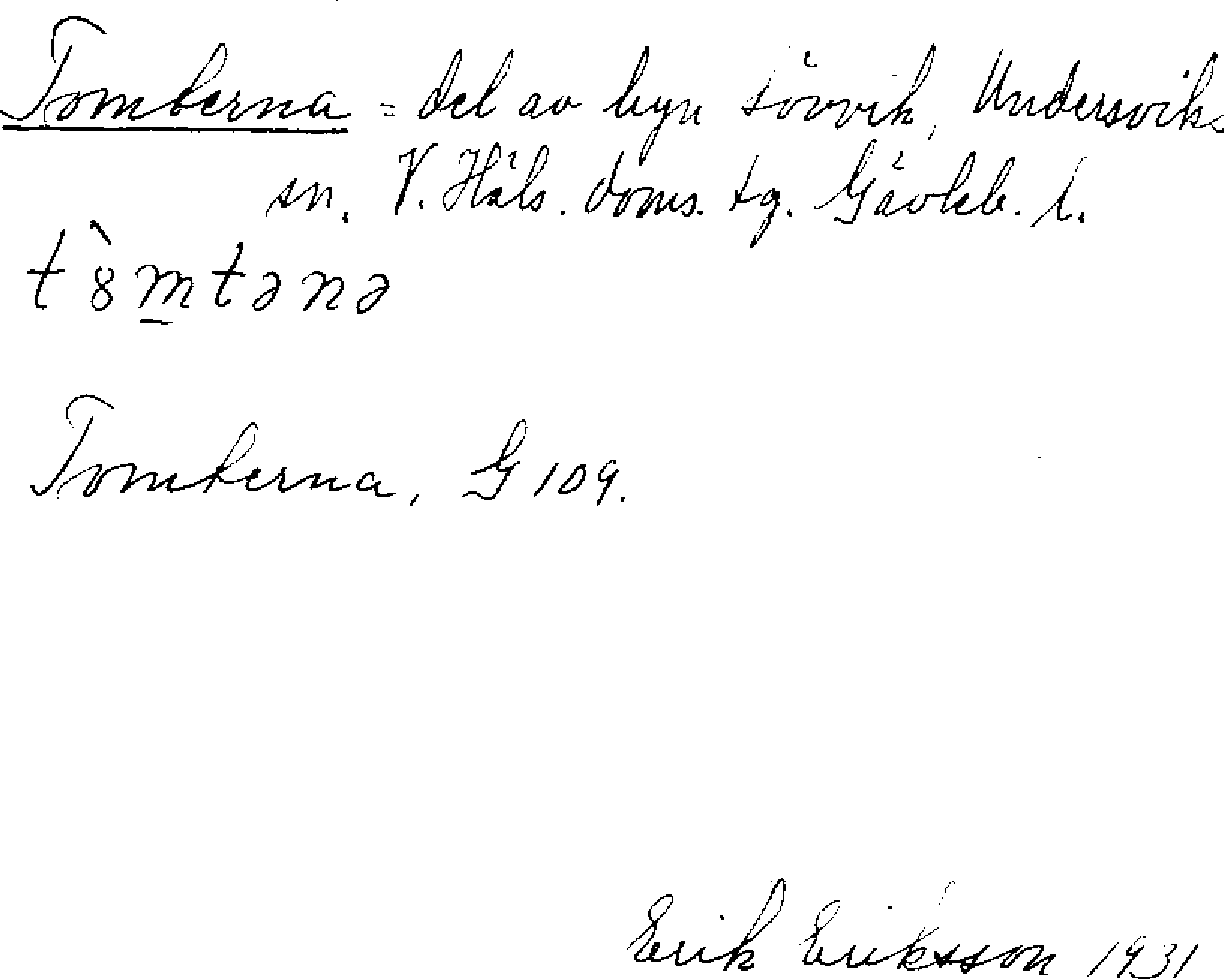 Tomterna = del av byn Sörvik, Undersviks
sn. V. Häls. doms. tg. Gävleb. l.
t8̀m̲tənə
Tomterna, G 109.
Erik Eriksson 1931